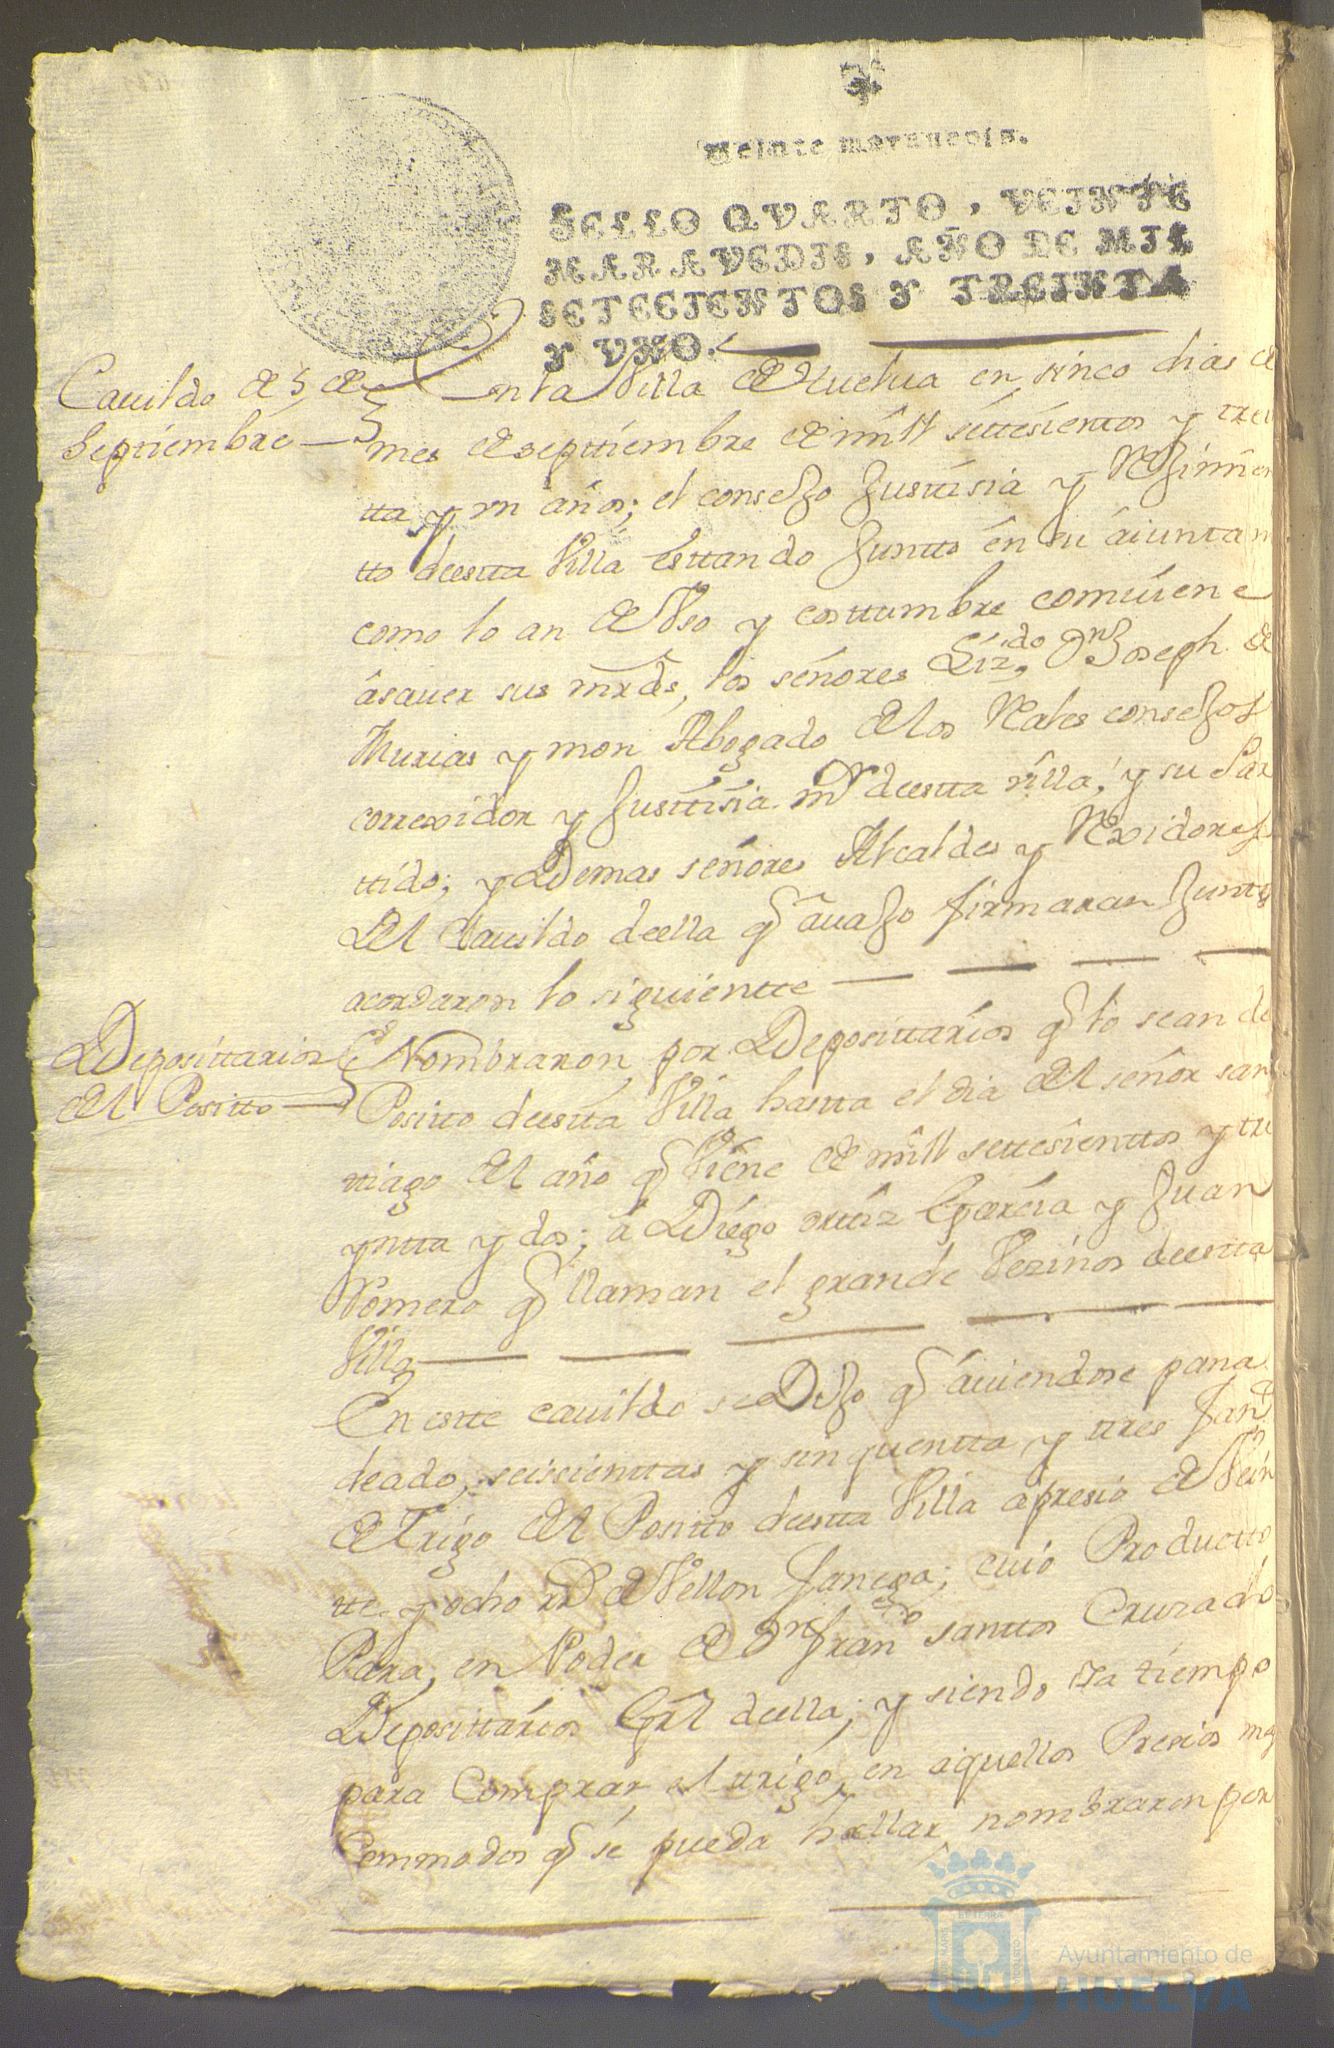 Veinte maravedis.
SELLO QVARTO, VEINTE
MARAVEDIS, AÑO DE MIL
SETECIENTOS Y TREINTA
Y VNO.
Cauildo de 5 de
Septiembre
En la Villa de Huelua en sinco dias de
mes de septtiembre de mill settesientos y trei
tta y vn años; el consejo Justtisia y Rejimien
tto deestta Villa esttando Junttos en su aiuntam
como lo an de Vso y costtumbre comuiene
asauer sus mrds, los señores Lizdo Dn Joseph de
Murias y mon Abogado de los Rales consejos
correxidor y Justtisia mor deestta villa, y su Par
ttido; y Demas señores Alcaldes y Rexidores
del Cauildo deella q auajo firmaran Junttos
acordaron lo siguientte
Deposittarios
del Positto
Nombraron por Deposittarios q lo sean de
Positto deestta Villa hastta el dia del señor san
ttiago del año q Viene de mill settesienttos y tre
yntta y dos; a Diego orttiz Garcia y Juan
Romero q llaman el grande Vezinos deestta
Villa
En estte cauildo se Dijo q auiendose pana
deado, seiscienttas y sinquentta y ttres fans
de Trigo del Positto deestta Villa apresio de Vein
tte y ocho rrs de Vellon fanega; cuio Producto
Para, en Poder de Dn Franco santtos Cruzado
Deposittarios Grl deella; y siendo ya tiempo
para Comprar el ttrigo, en aquellos Presios mas
Commodos q se pueda hallar, nombraron por
Ayuntamiento de
HUELVA